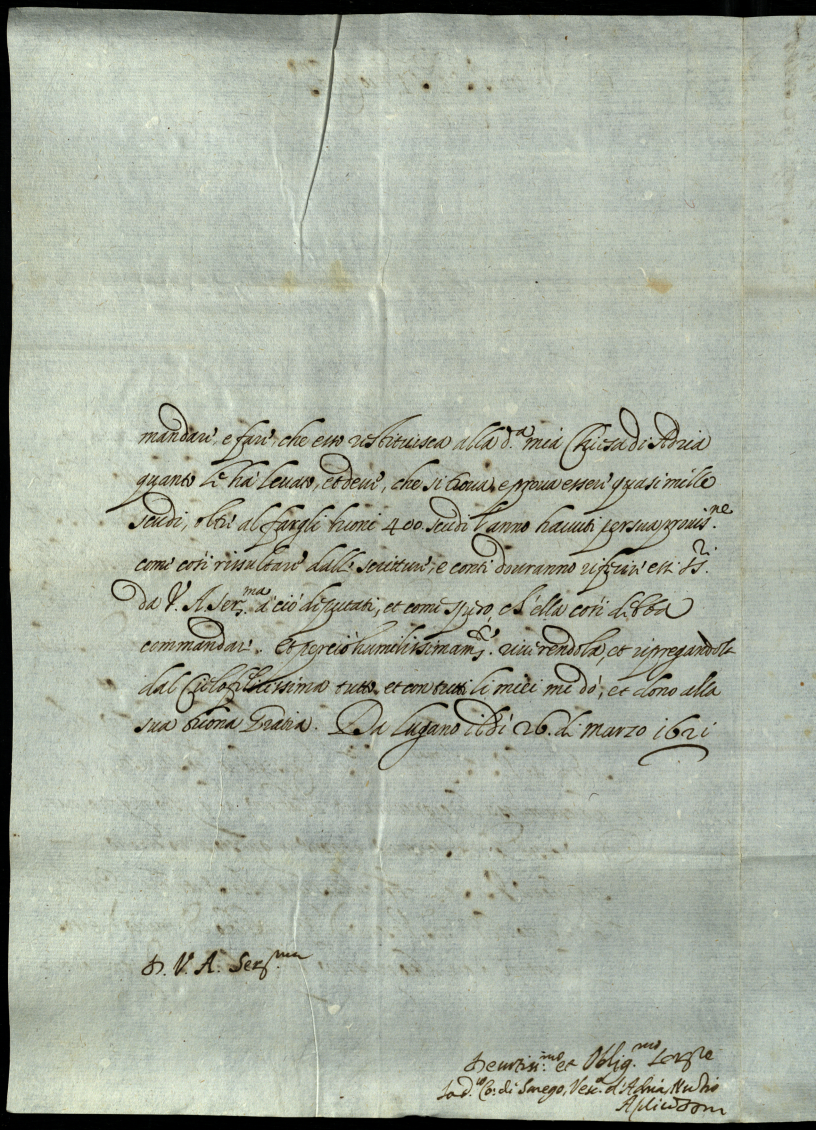 mandare, e fare, che esso restituisca alla d.ª mia Chiesa di Adria
quanto le ha levato, et deve, che si trova, e prova essere quasi mille
scudi, oltre al fargli buoni 400 scudi l'anno havuti per sua provis.ne
come così rissultare dalle scritture, e conti dovranno riferire essi SS.ri
da V. A. Ser.ma a ciò deputati, et come spero, ch'ella così debba
commandare. Et perciò humilissimam.te riverendola, et ripregandole
dal Cielo felicissima tutto, et con tutti li miei me dò, et dono alla
sua buona Gratia. Da Lugano il dì 26. di Marzo 1621
D. V. A. Ser.ma
Devotiss.mo et Oblig.mo Ser.re
Lod.co Co. di Sarego, Vesc.º d'Adria, Nuntio
Aplico